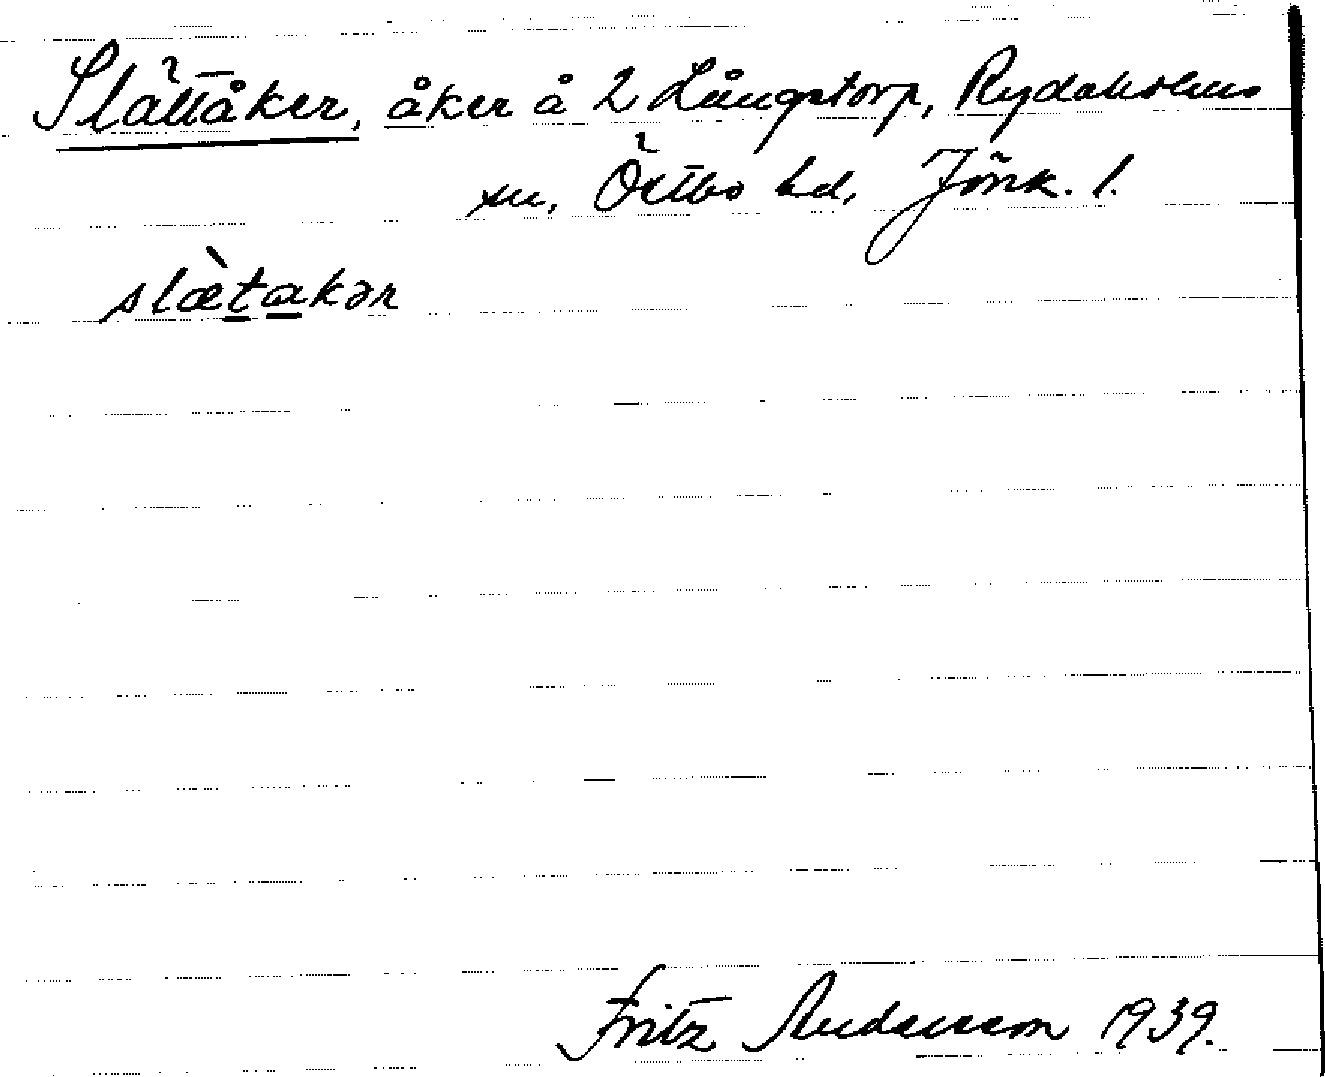 Slättåker, åker å 2 Långstorp, Rydaholms
sn, Östbo hd, Jönk. l.
slætakər
Fritz Andersson 1939.